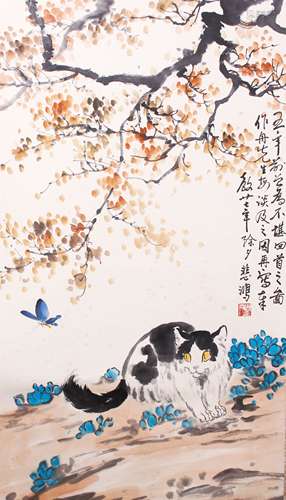 五年前曾為不堪回首之圖
作舟先生每談及之因再寫奉
年除夕悲鴻